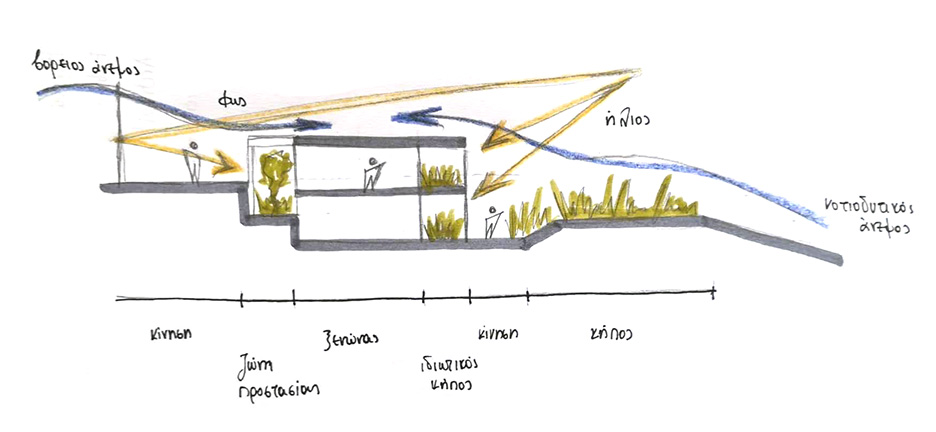 βορειος άνεμος
φως
ήλιος
νοτιοδυτικός
άνεμος
κίνηση
ζώνη
προστασίας
ξενώνας
ιδιωτικός
κήπος
κίνηση
κήπος